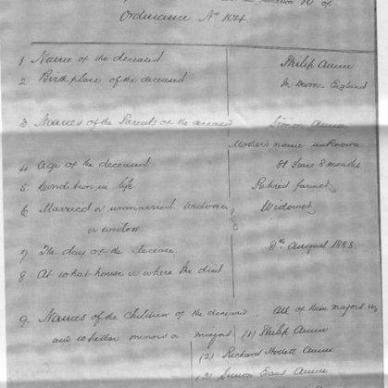 Ordinance No 104
1 Name of the deceased Philip Amm
2 Birthplace of the deceased England
3 Names of the Parents of the deceased Simon Amm
Mother's name unknown
4 Age of the deceased 81 Years 8 months
5 Condition in life Retired farmer
6 Married or unmarried, widower Widower
or widow
7 The day of the decease 8th August 1883
8 At what house or where she died
9 Names of the Children of the deceased All of them majors
and whether minors or majors (1) Philip Amm
(2) Richard Amm
(3) Simon Amm